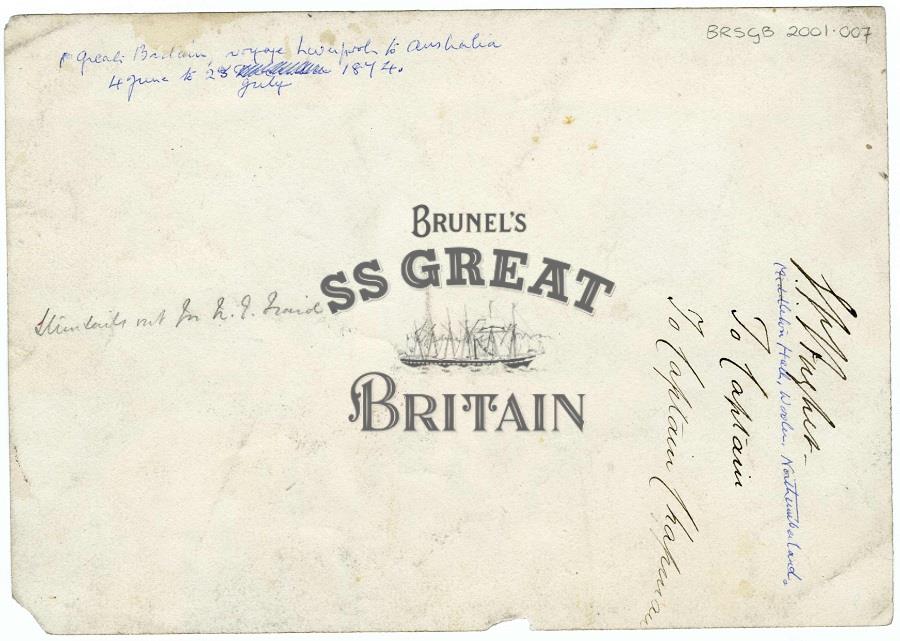 BRSGB 2001.007
Great Britain, voyage Liverpool to Australia
4 June to 28 1874.
July
BRUNEL'S
SS GREAT
BRITAIN
out for
Middleton Hall, Wooler, Northumberland.
To Captain
To Captain Chapman